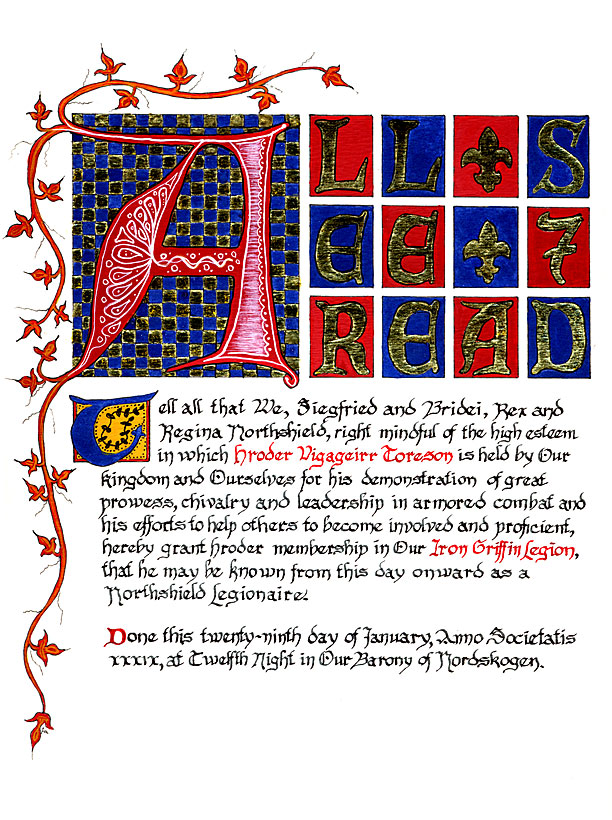 ALL S
EE 7
READ
Tell all that We, Siegfried and Bridei, Rex and
Regina Northshield, right mindful of the high esteem
in which Hroder Vigageirr Toreson is held by Our
Kingdom and Ourselves for his demonstration of great
prowess, chivalry and leadership in armored combat and
his efforts to help others to become involved and proficient,
hereby grant Hroder membership in Our Iron Griffin Legion,
that he may be known from this day onward as a
Northshield Legionaire.
Done this twenty-ninth day of January, Anno Societatis
xxxix, at Twelfth Night in Our Barony of Nordskogen.